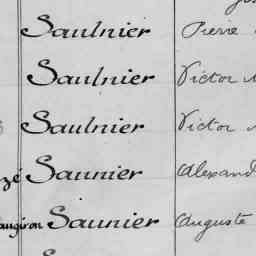 Saulnier Pierre
Saulnier Victor
Saulnier Victor
Saunier Alexand
augiron Saunier Auguste